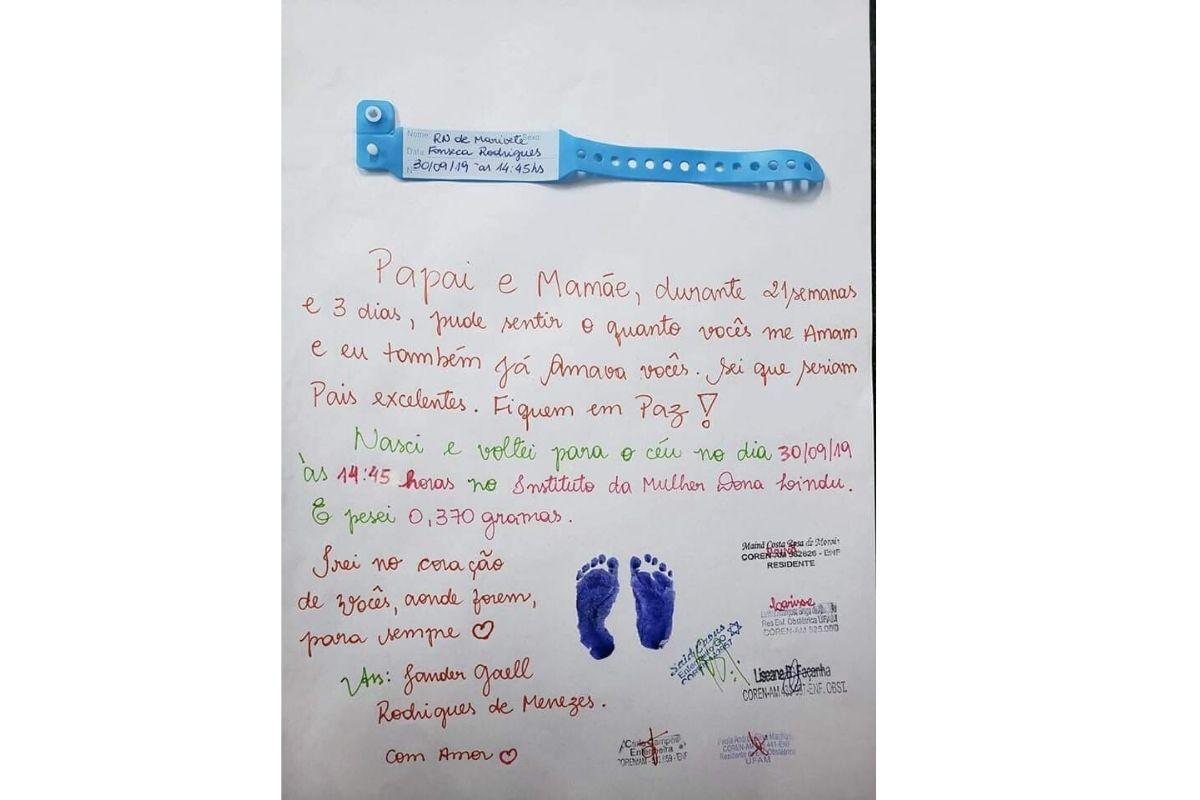 Nome: RN de Marivete Sexo:
Data: Fonseca Rodrigues
N 30/09/19 às 14:45hs
Papai e Mamãe, durante 21 semanas
e 3 dias, pude sentir o quanto vocês me Amam
e eu também já Amava vocês. Sei que seriam
Pais excelentes. Fiquem em Paz!
Nasci e voltei para o céu no dia 30/09/19
às 14:45 horas no Instituto da Mulher Dona Lindu.
E pesei 0,370 gramas.
Irei no coração
de vocês, aonde forem,
para sempre ♡
Ass: Sander Gaell
Rodrigues de Menezes.
Com Amor ♡
Mainã Costa Rosa de
COREN-AM - ENF
RESIDENTE
Larisse
Res Enf. Obstétrica UFAM
COREN-AM 525.000
Liseane B. Façanha
COREN-AM - ENF. OBST
Enfermeira
COREN/AM - ENF
COREN-AM ENF
Residente Obstétrica
UFAM